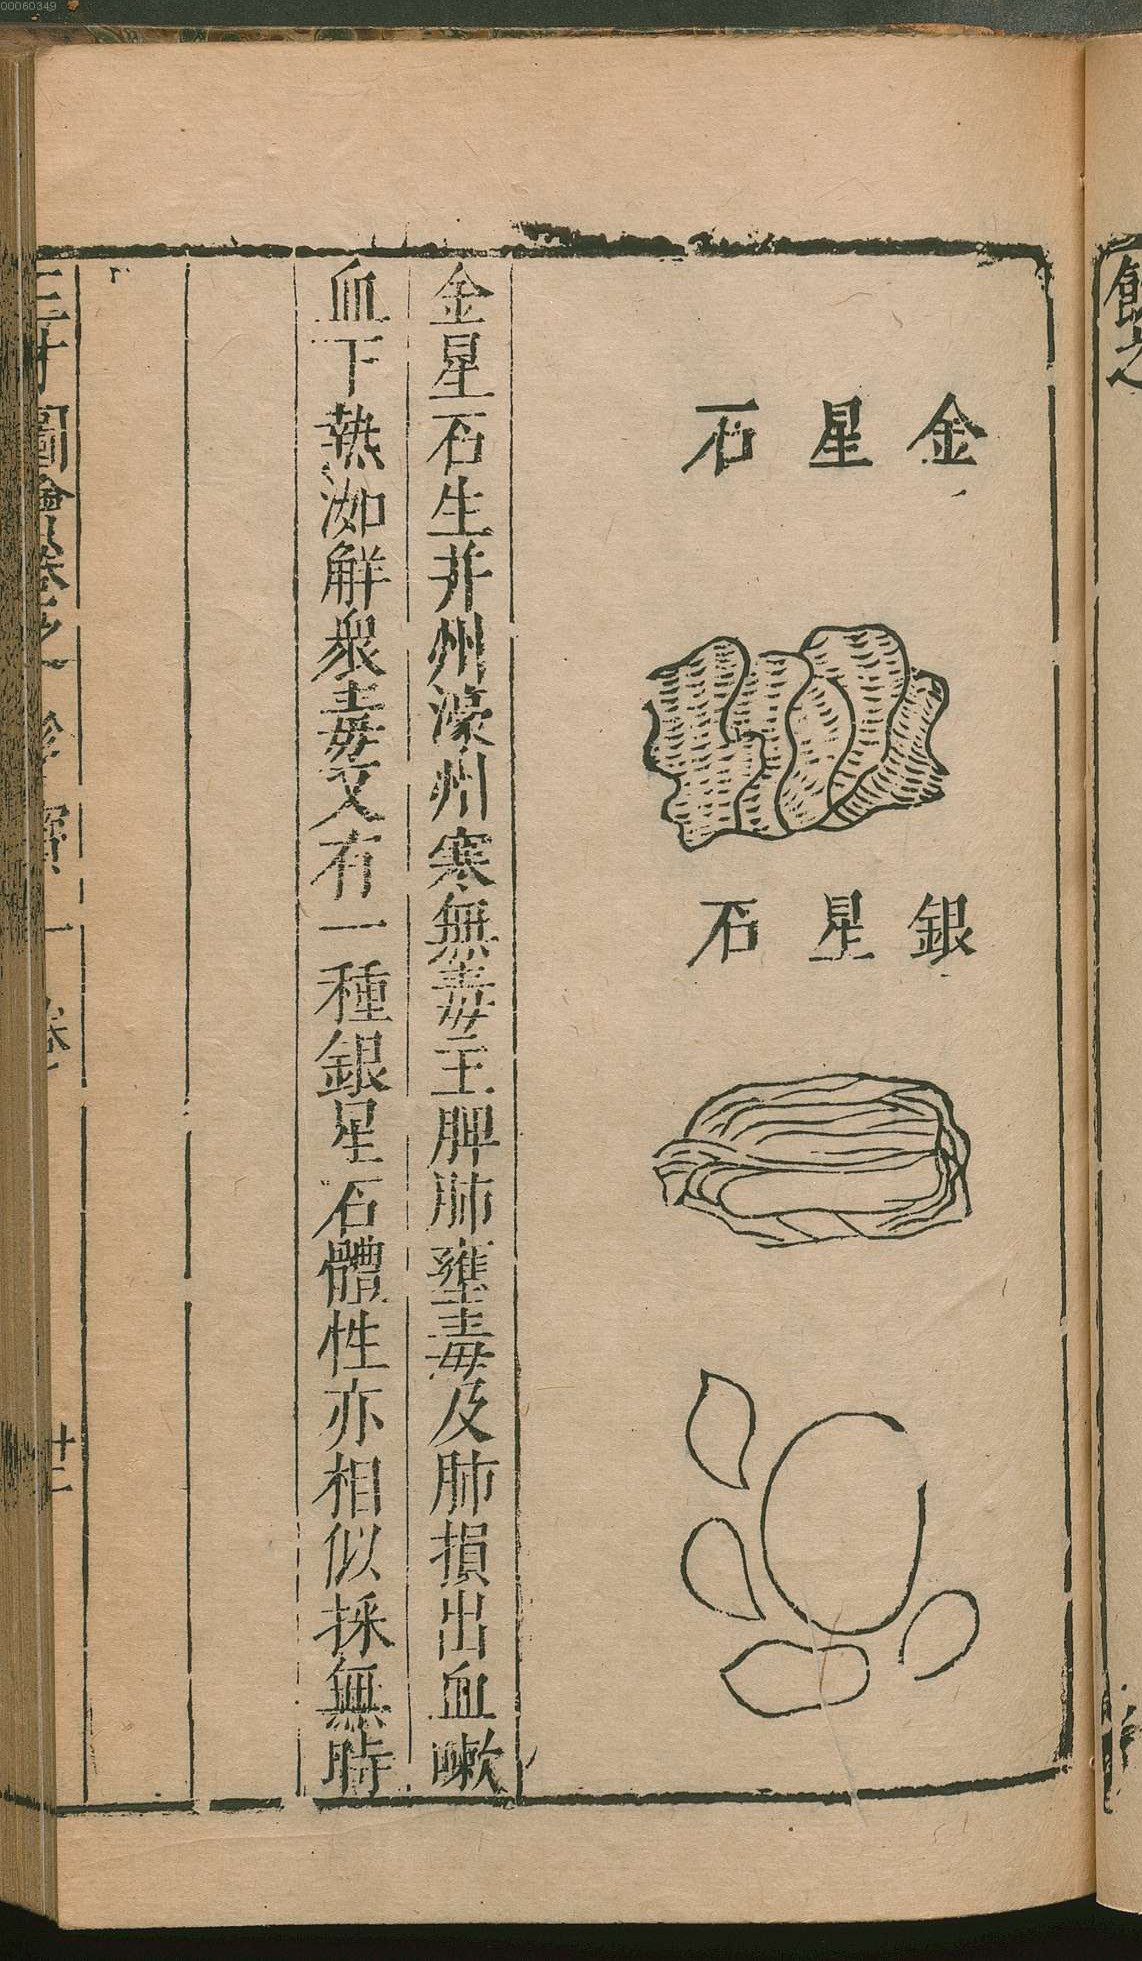 00060349
蝕之
金星石
銀星石
金星石生并州濠州寒無毒主脾肺壅毒及肺損出血嗽
血下熱洳解衆毒又有一種銀星石體性亦相似採無時
三才圖會
卷之一
寶一卷
廿二